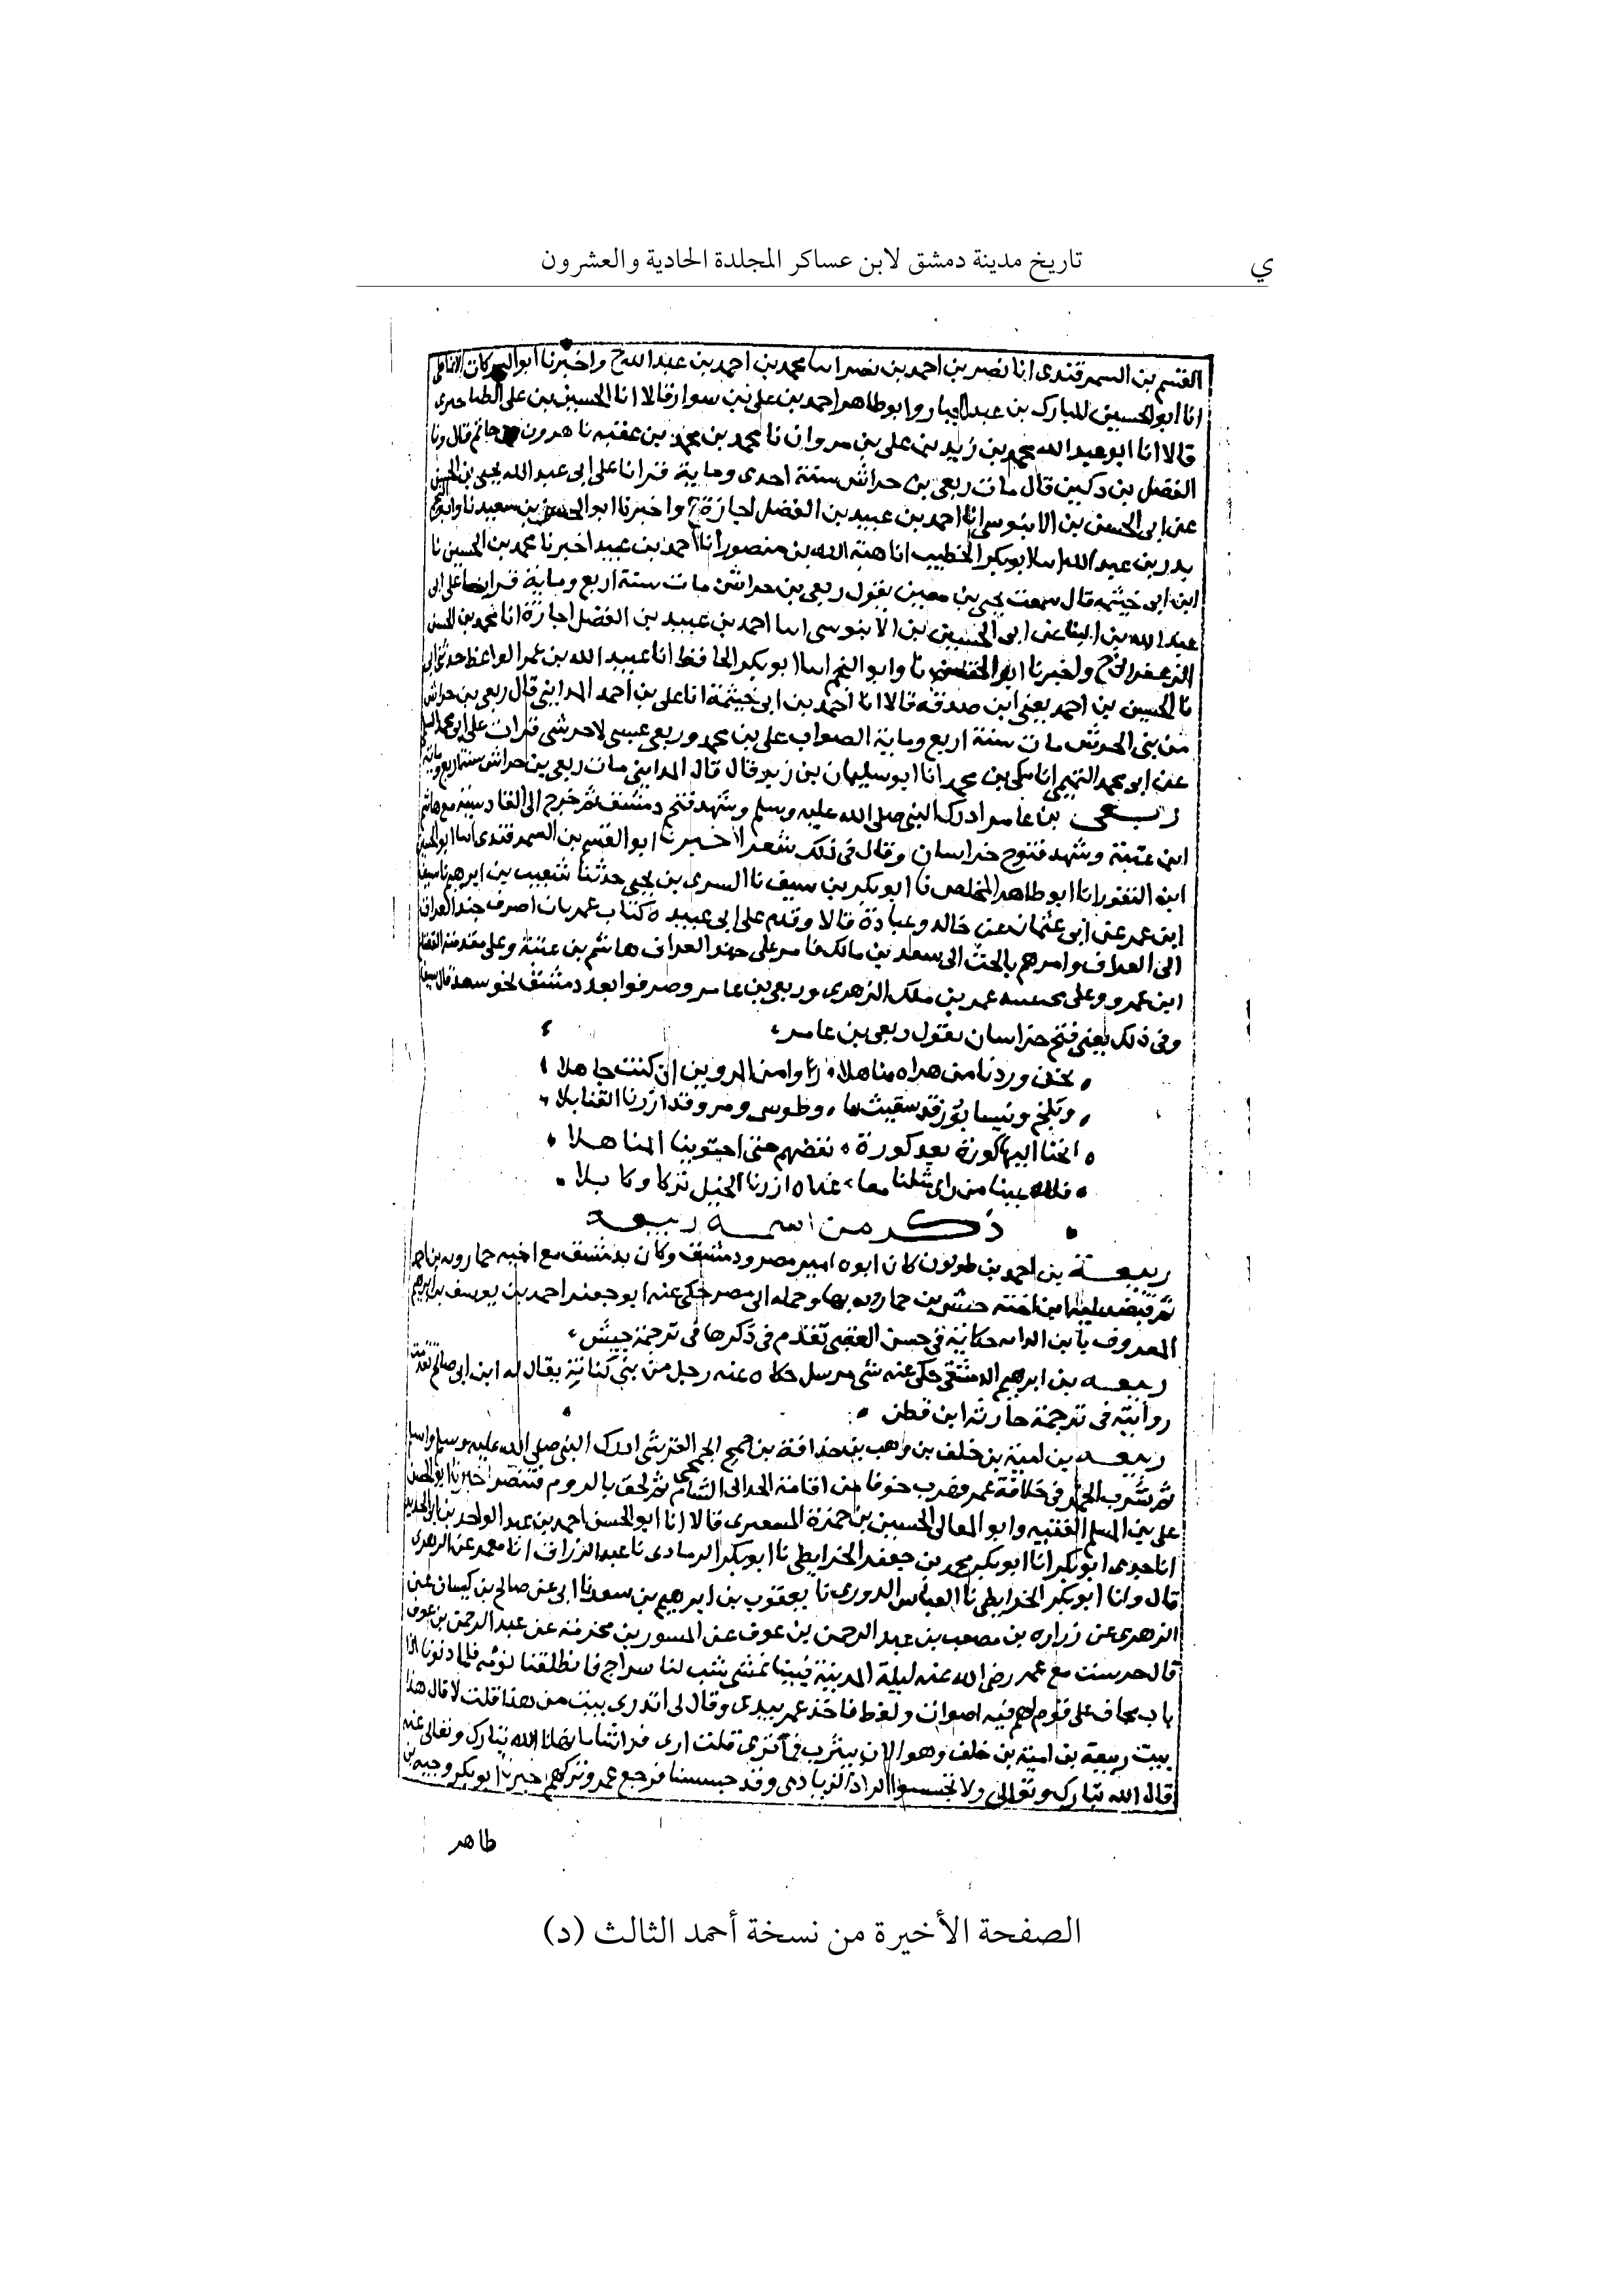 ي
تاريخ مدينة دمشق لابن عساكر المجلدة الحادية والعشرون
القسم بن السمرقندى انا نصر بن احمد بن نصر انا محمد بن احمد بن عبد الله ح واخبرنا ابو البركات الانماطى
انا ابو الحسين المبارك بن عبد الجبار وابو طاهر احمد بن على بن سوار قالا انا الحسين بن على الطناجيرى
قالا انا ابو عبد الله محمد بن زيد بن على بن مروان نا محمد بن محمد بن عقبه نا هرون بن حاتم قال ونا
الفضل بن دكين قال مات ربعى بن حراش سنة احدى وماية قرانا على ابى عبد الله يحيى بن الحسن
عن ابى الحسن بن الابنوسى انا احمد بن عبيد بن الفضل اجازة ح واخبرنا ابو الحسن بن سعيد نا وابو النجم
بدر بن عبد الله انا ابو بكر الخطيب انا هبة الله بن منصور انا احمد بن عبيد اخبرنا محمد بن الحسين نا
ابن ابى خيثمه قال سمعت يحيى بن معين يقول ربعى بن حراش مات سنة اربع وماية قرانا على ابى
عبد الله بن البنا عن ابى الحسين بن الابنوسى انا احمد بن عبيد بن الفضل اجازة انا محمد بن الحسن
الزعفرانى ح واخبرنا ابو الحسن نا وابو النجم انا ابو بكر الحافظ انا عبيد الله بن عمر الواعظ حدثنى ابى
نا الحسين بن احمد يعنى ابن صدقه قالا انا احمد بن ابى خيثمة انا على بن احمد المداينى قال ربعى بن حراش
من بنى الحرثى مات سنة اربع وماية الصواب على بن محمد وربعى عبسى لا حرشى قرات على ابى محمد السلمى
عن ابو محمد التميمى انا مكى بن محمد انا ابو سليمان بن زيد قال قال المداينى مات ربعى بن حراش سنة اربع وماية
ربعى بن عامر ادرك النبى صلى الله عليه وسلم وشهد فتح دمشق ثم خرج الى القادسية مع هاشم
ابن عتبة وشهد فتوح خراسان وقال فى ذلك شعرا اخبرنا ابو القسم بن السمرقندى انا ابو الحسين
ابن النقور انا ابو طاهر المخلص نا ابو بكر بن سيف نا السرى بن يحيى حدثنا شعيب بن ابرهيم نا سيف
ابن عمر عن ابى عثمان عن خالد وعبادة قالا وقدم على ابى عبيدة كتاب عمر بان اصرف جند العراق
الى العراق وامرهم بالحث الى سعد بن مالك فامر على جند العراق هاشم بن عتبة وعلى مقدمته القعقاع
ابن عمرو وعلى مجنبته عمر بن ملك الزهرى وربعى بن عامر وصرفوا بعد دمشق نحو سعد قال سيف
وفى ذلك يعنى فتح خراسان يقول ربعى بن عامر
نحن وردنا من هراه مناهلا رواء من المروين ان كنت جاهلا
وبلخ ونيسابور قد سقيت بنا وطوس ومرو قد ازرنا القنابلا
انخنا اليها كورة بعد كورة نفضهم حتى احتوينا المناهلا
فلله عينا من راى مثلنا معا غداه ازرنا الخيل تركا وكابلا
ذكر من اسمه ربيعه
ربيعة بن احمد بن طولون كان ابوه امير مصر ودمشق وكان بدمشق مع اخيه خمارويه بن احمد
ثم قبض عليه ابن اخيه جيش بن خمارويه بها وحمله الى مصر حكى عنه ابو جعفر احمد بن يوسف بن ابرهيم
المعروف بابن الدايه حكاية فى حسن العفو تقدم فى ذكرها فى ترجمة جيش
ربيعه بن ابرهيم الدمشقى حكى عنه شى مرسل حكاه عنه رجل من بنى كنانة يقال له ابن ابى صالح تقدمت
روايته فى ترجمة حارثه ابن قطن
ربيعه بن امية بن خلف بن وهب بن حذافة بن جمح الجمحى القرشى ادرك النبى صلى الله عليه وسلم واسلم
ثم شرب الخمر فى خلافة عمر فهرب خوفا من اقامة الحد الى الشام ثم لحق بالروم فتنصر اخبرنا ابو الحسن
على بن المسلم الفقيه وابو المعالى الحسين بن حمزة السعيرى قالا انا ابو الحسن احمد بن عبد الواحد بن ابى الحديد
انا جدى ابو بكر انا ابو بكر محمد بن جعفر الخرايطى نا ابو بكر الرمادى نا عبد الرزاق انا معمر عن الزهرى
قال وانا ابو بكر الخرايطى نا العباس الدورى نا يعقوب بن ابرهيم بن سعد نا ابى عن صالح بن كيسان عن
الزهرى عن زراره بن مصعب بن عبد الرحمن بن عوف عن المسور بن مخرمة عن عبد الرحمن بن عوف
قال حرست مع عمر رضى الله عنه ليلة المدينة فبينا نمشى شب لنا سراج فانطلقنا نومه فلما دنونا اذا
باب مجاف على قوم لهم فيه اصوات ولغط فاخذ عمر بيدى وقال لى اتدرى بيت من هذا قلت لا قال هذا
بيت ربيعة بن امية بن خلف وهو الان يشرب فما ترى قلت ارى قد اتينا ما نهانا الله تبارك وتعالى عنه
قال الله تبارك وتعالى ولا تجسسوا الرمادى وقد جسسنا فرجع عمر وتركهم اخبرنا ابو بكر وجيه بن
طاهر
الصفحة الأخيرة من نسخة أحمد الثالث (د)